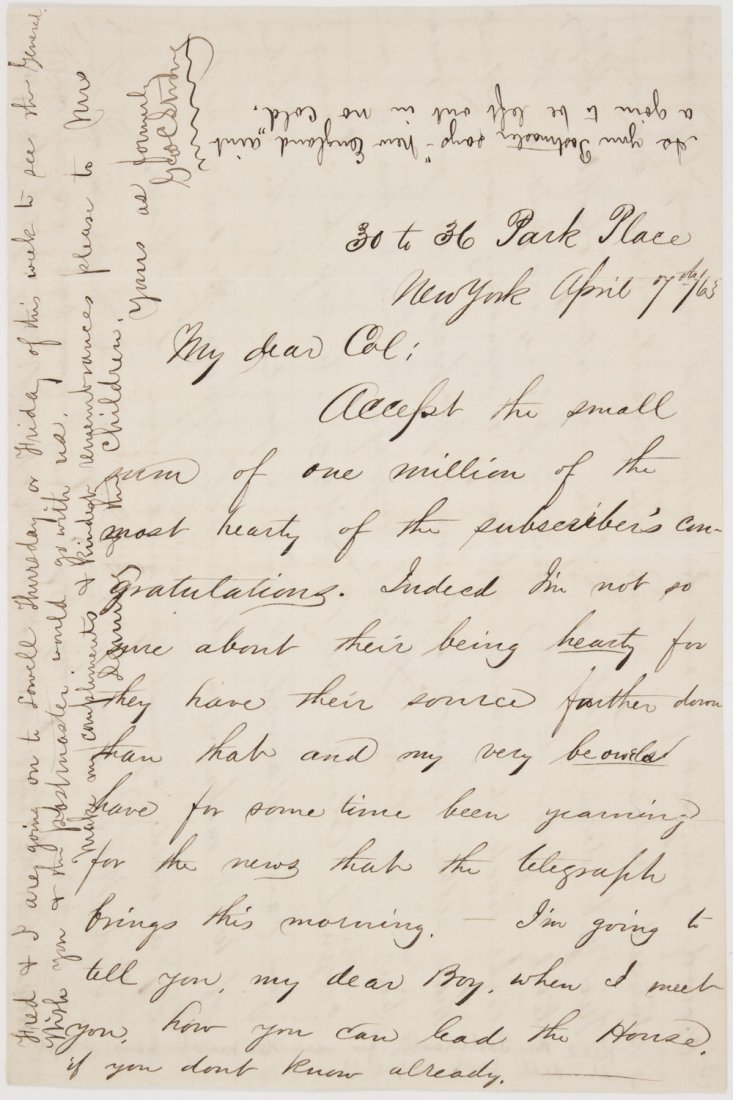 30 to 36 Park Place
New York April 7th/63
My dear Col;
Accept the small
sum of one million of the
most hearty of the subscriber's con-
gratulations. Indeed I'm not so
sure about their being hearty for
they have their source further down
than that and my very
have for some time been yearning
for the news that the telegraph
brings this morning. — I'm going to
tell you, my dear Boy, when I meet
you, how you can lead the House,
if you dont know already.
Fred & I are going on to Lowell Thursday or Friday of this week to see the General.
Wish you & the postmaster would go with us.
Make my compliments & kindest remembrances please to Mrs
& the Children.
Yours as formerly
Geo C Strong
As your Postmaster says "New England" aint
a goin to be left out in no cold.